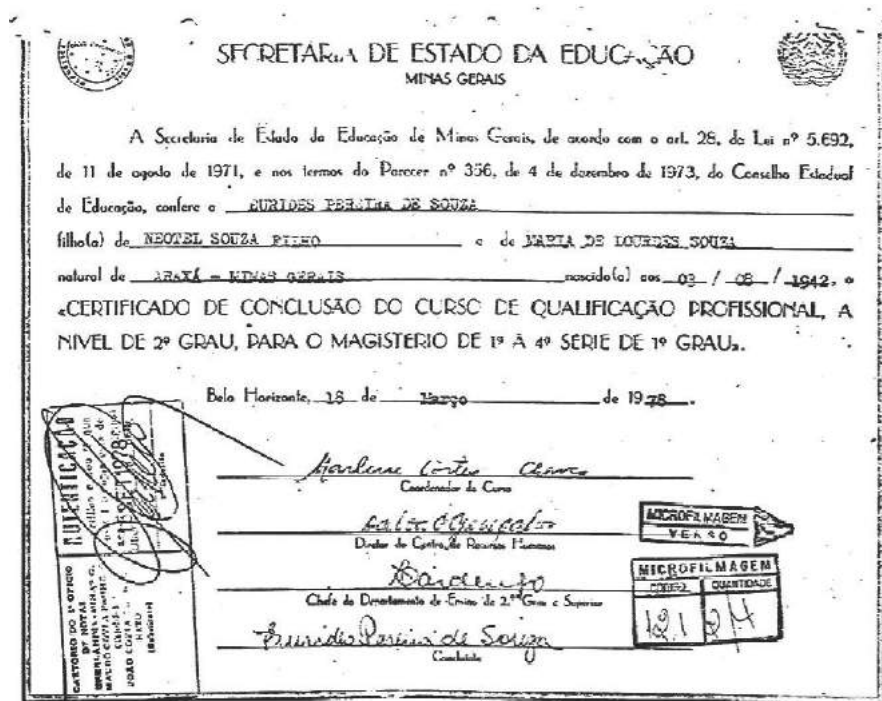 SECRETARIA DE ESTADO DA EDUCAÇÃO
MINAS GERAIS
A Secretaria de Estado da Educação de Minas Gerais, de acordo com o art. 28, da Lei nº 5.692,
de 11 de agosto de 1971, e nos termos do Parecer nº 356, de 4 de dezembro de 1973, do Conselho Estadual
de Educação, confere a EURIDES PEREIRA DE SOUZA
filho(a) de NEOTEL SOUZA FILHO e de MARIA DE LOURDES SOUZA
natural de ARAXÁ - MINAS GERAIS nascido(a) aos 03 / 08 / 1942, o
«CERTIFICADO DE CONCLUSÃO DO CURSO DE QUALIFICAÇÃO PROFISSIONAL, A
NIVEL DE 2º GRAU, PARA O MAGISTERIO DE 1ª À 4ª SERIE DE 1º GRAU».
Belo Horizonte, 18 de Março de 1978.
Marlene Côrtes
Coordenador do Curso
Diretor do Centro de Recursos Humanos
Chefe do Departamento de Ensino de 2.º Grau e Superior
Eurides Pereira de Souza
Concluinte
AUTENTICAÇÃO
SET 1978
CARTORIO DO 1º OFICIO
DE NOTAS
MICROFILMAGEM
VERSO
MICROFILMAGEM
CÓDIGO QUANTIDADE
121 24